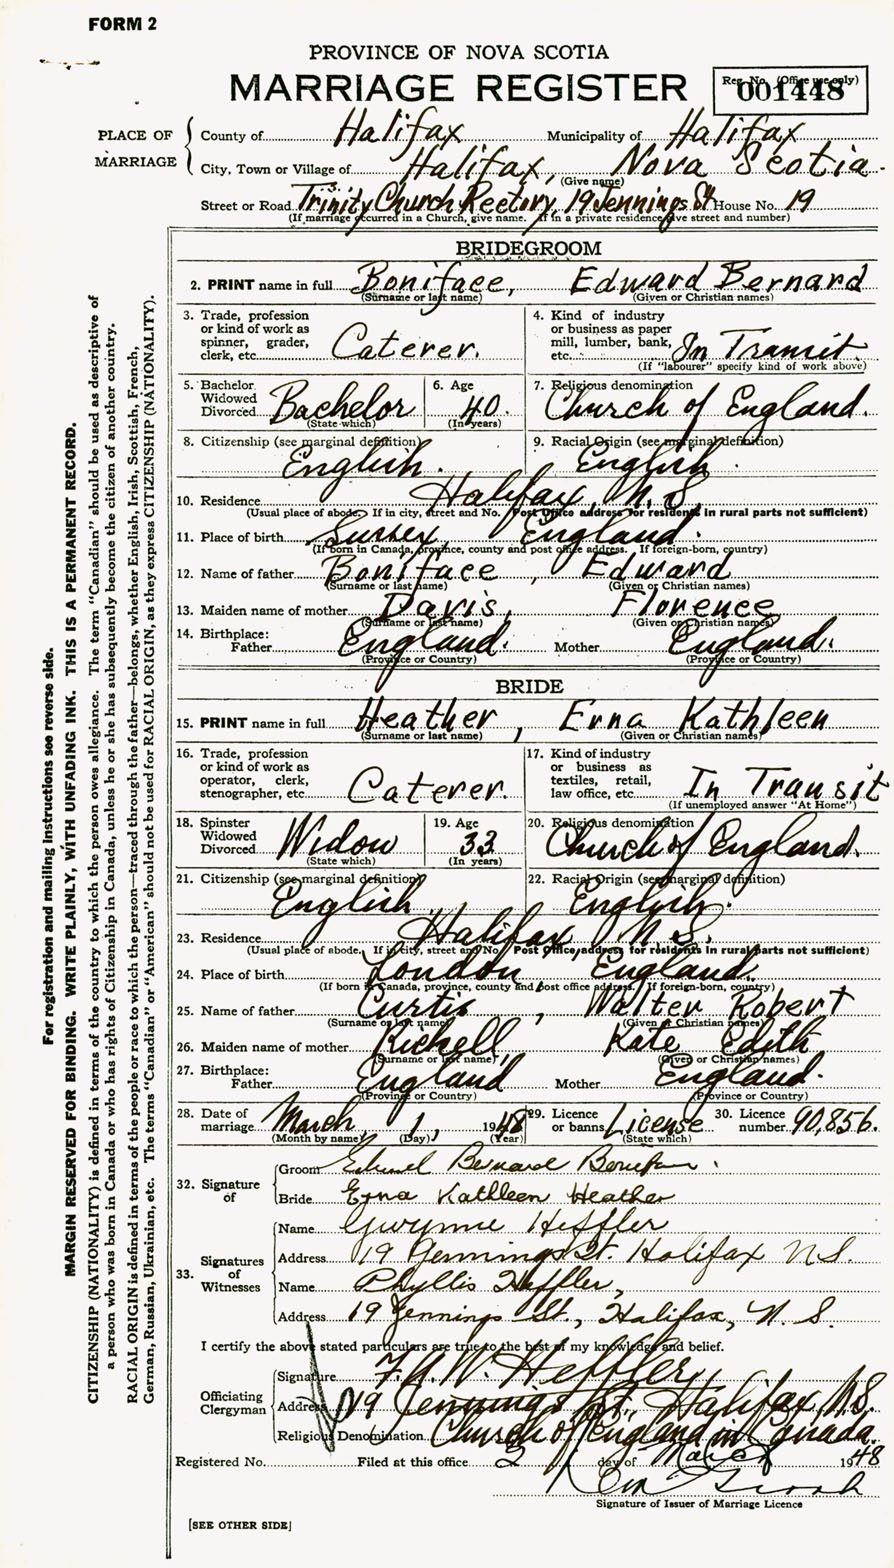 FORM 2
PROVINCE OF NOVA SCOTIA
MARRIAGE REGISTER
Reg. No. (Office use only)
001448
PLACE OF MARRIAGE
County of Halifax Municipality of Halifax
City, Town or Village of Halifax, Nova Scotia.
(Give name)
Street or Road Trinity Church Rectory, 19 Jennings St House No. 19
(If marriage occurred in a Church, give name. If in a private residence give street and number)
BRIDEGROOM
2. PRINT name in full Boniface, Edward Bernard
(Surname or last name) (Given or Christian names)
3. Trade, profession or kind of work as spinner, grader, clerk, etc. Caterer.
4. Kind of industry or business as paper mill, lumber, bank, etc. In Transit
(If "labourer" specify kind of work above)
5. Bachelor Widowed Divorced Bachelor
(State which)
6. Age 40.
(In years)
7. Religious denomination
Church of England.
8. Citizenship (see marginal definition)
English.
9. Racial Origin (see marginal definition)
English.
10. Residence Halifax, N.S.
(Usual place of abode. If in city, street and No. Post Office address for residents in rural parts not sufficient)
11. Place of birth Sussex, England.
(If born in Canada, province, county and post office address. If foreign-born, country)
12. Name of father Boniface, Edward
(Surname or last name) (Given or Christian names)
13. Maiden name of mother Davis, Florence
(Surname or last name) (Given or Christian names)
14. Birthplace:
Father England. Mother England.
(Province or Country) (Province or Country)
BRIDE
15. PRINT name in full Heather, Erna Kathleen
(Surname or last name) (Given or Christian names)
16. Trade, profession or kind of work as operator, clerk, stenographer, etc. Caterer.
17. Kind of industry or business as textiles, retail, law office, etc. In Transit
(If unemployed answer "At Home")
18. Spinster Widowed Divorced Widow
(State which)
19. Age 33
(In years)
20. Religious denomination
Church of England.
21. Citizenship (see marginal definition)
English
22. Racial Origin (see marginal definition)
English.
23. Residence Halifax N.S.
(Usual place of abode. If in city, street and No. Post Office address for residents in rural parts not sufficient)
24. Place of birth London England.
(If born in Canada, province, county and post office address. If foreign-born, country)
25. Name of father Curtis, Walter Robert
(Surname or last name) (Given or Christian names)
26. Maiden name of mother Kate Edith
(Surname or last name) (Given or Christian names)
27. Birthplace:
Father England Mother England.
(Province or Country) (Province or Country)
28. Date of marriage March 1, 1948
(Month by name) (Day) (Year)
29. Licence or banns License
(State which)
30. Licence number 90,856.
32. Signature of
Groom Edward Bernard Boniface.
Bride Erna Kathleen Heather
33. Signatures of Witnesses
Name Gwynne Heffler
Address 19 Jennings St. Halifax N.S.
Name Phyllis Heffler,
Address 19 Jennings St., Halifax, N.S.
I certify the above stated particulars are true to the best of my knowledge and belief.
Officiating Clergyman
Signature F.A.W. Heffler
Address 19 Jennings St., Halifax, N.S.
Religious Denomination Church of England in Canada.
Registered No. Filed at this office 2 day of March 1948
Signature of Issuer of Marriage Licence
[SEE OTHER SIDE]
For registration and mailing instructions see reverse side.
MARGIN RESERVED FOR BINDING. WRITE PLAINLY, WITH UNFADING INK. THIS IS A PERMANENT RECORD.
CITIZENSHIP (NATIONALITY) is defined in terms of the country to which the person owes allegiance. The term "Canadian" should be used as descriptive of
a person who was born in Canada or who has rights of Citizenship in Canada, unless he or she has subsequently become the citizen of another country.
RACIAL ORIGIN is defined in terms of the people or race to which the person—traced through the father—belongs, whether English, Irish, Scottish, French,
German, Russian, Ukrainian, etc. The terms "Canadian" or "American" should not be used for RACIAL ORIGIN, as they express CITIZENSHIP (NATIONALITY).